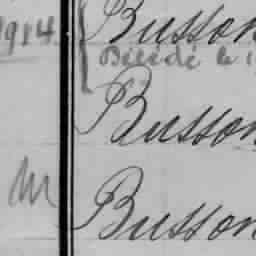 1914 Busson
Décédé le
Busson
M Busson